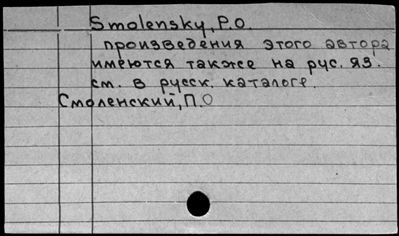 Smolensky, P.O.
произведения этого автора
имеются также на рус. яз.
см. в русск. каталоге.
Смоленский, П.О